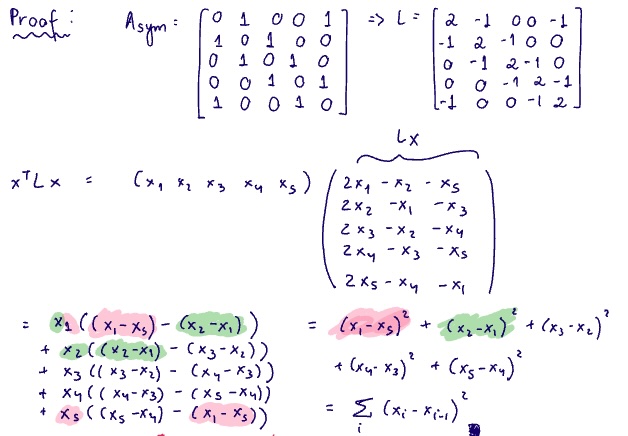 Proof: A_sym = [0 1 0 0 1; 1 0 1 0 0; 0 1 0 1 0; 0 0 1 0 1; 1 0 0 1 0] => L = [2 -1 0 0 -1; -1 2 -1 0 0; 0 -1 2 -1 0; 0 0 -1 2 -1; -1 0 0 -1 2]
Lx
x^T L x = (x_1 x_2 x_3 x_4 x_5) (2x_1 - x_2 - x_5
2x_2 - x_1 - x_3
2x_3 - x_2 - x_4
2x_4 - x_3 - x_5
2x_5 - x_4 - x_1)
= x_1((x_1 - x_5) - (x_2 - x_1)) = (x_1 - x_5)^2 + (x_2 - x_1)^2 + (x_3 - x_2)^2
+ x_2((x_2 - x_1) - (x_3 - x_2))
+ x_3((x_3 - x_2) - (x_4 - x_3)) + (x_4 - x_3)^2 + (x_5 - x_4)^2
+ x_4((x_4 - x_3) - (x_5 - x_4))
+ x_5((x_5 - x_4) - (x_1 - x_5)) = ∑_i (x_i - x_{i-1})^2